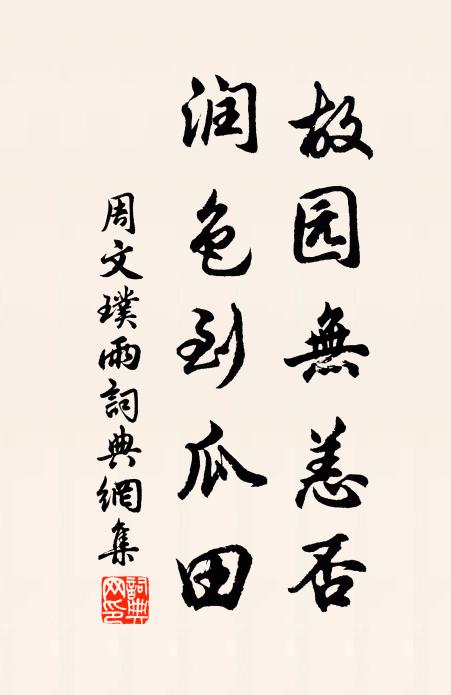 故园無恙否
润色到瓜田
周文璞雨詞典網集
詞典网印